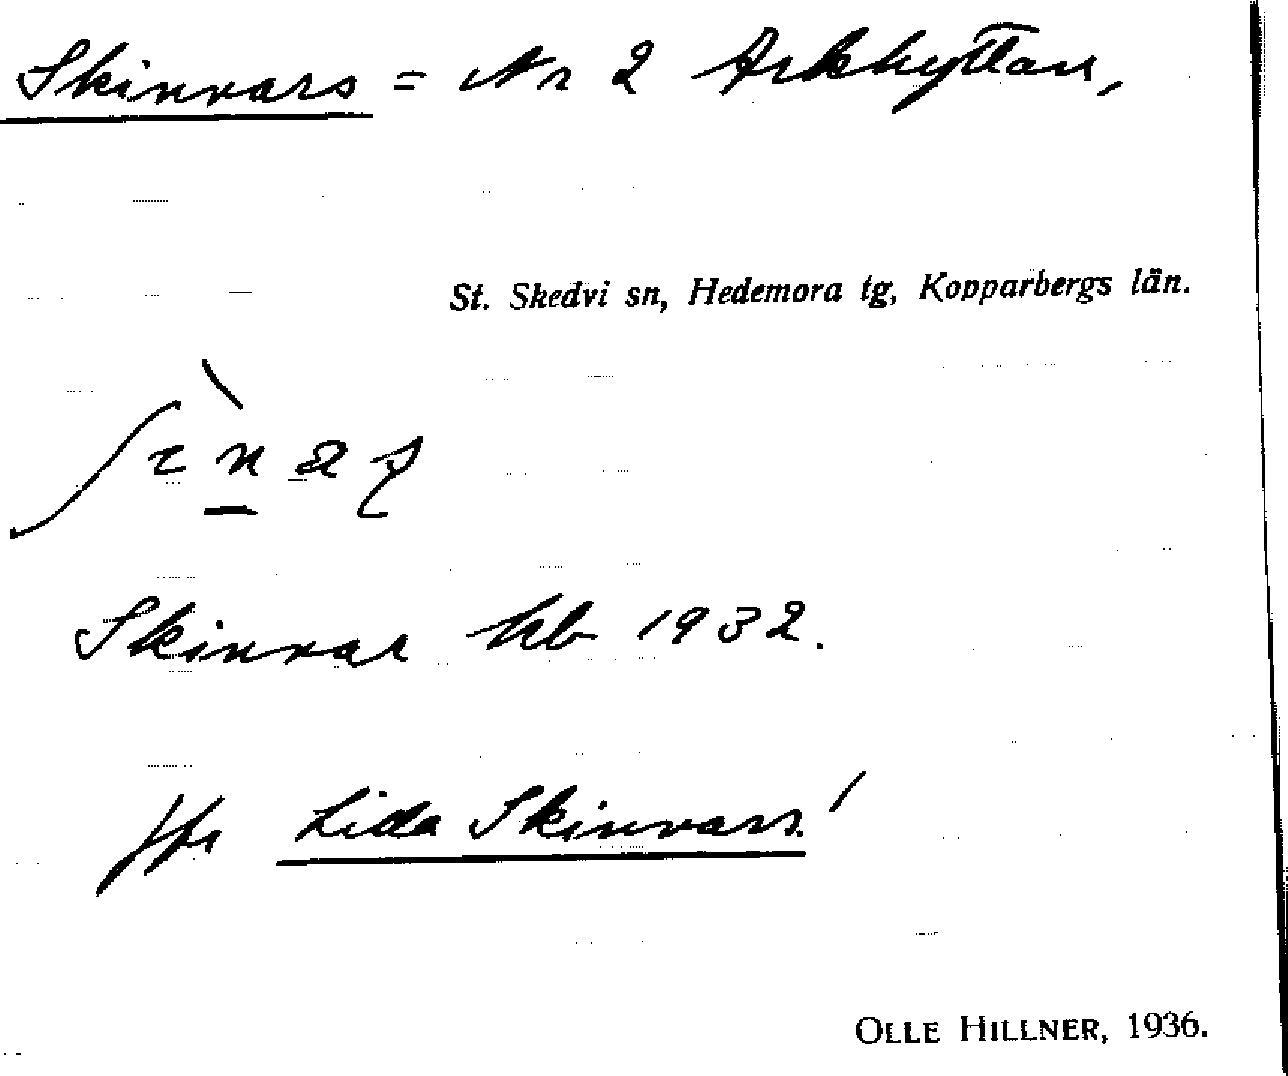 Skinnars = Nr 2 Arkhyttan,
St. Skedvi sn, Hedemora tg, Kopparbergs län.
Skinnar hb 1932.
Jfr Lida Skinnars!
OLLE HILLNER, 1936.